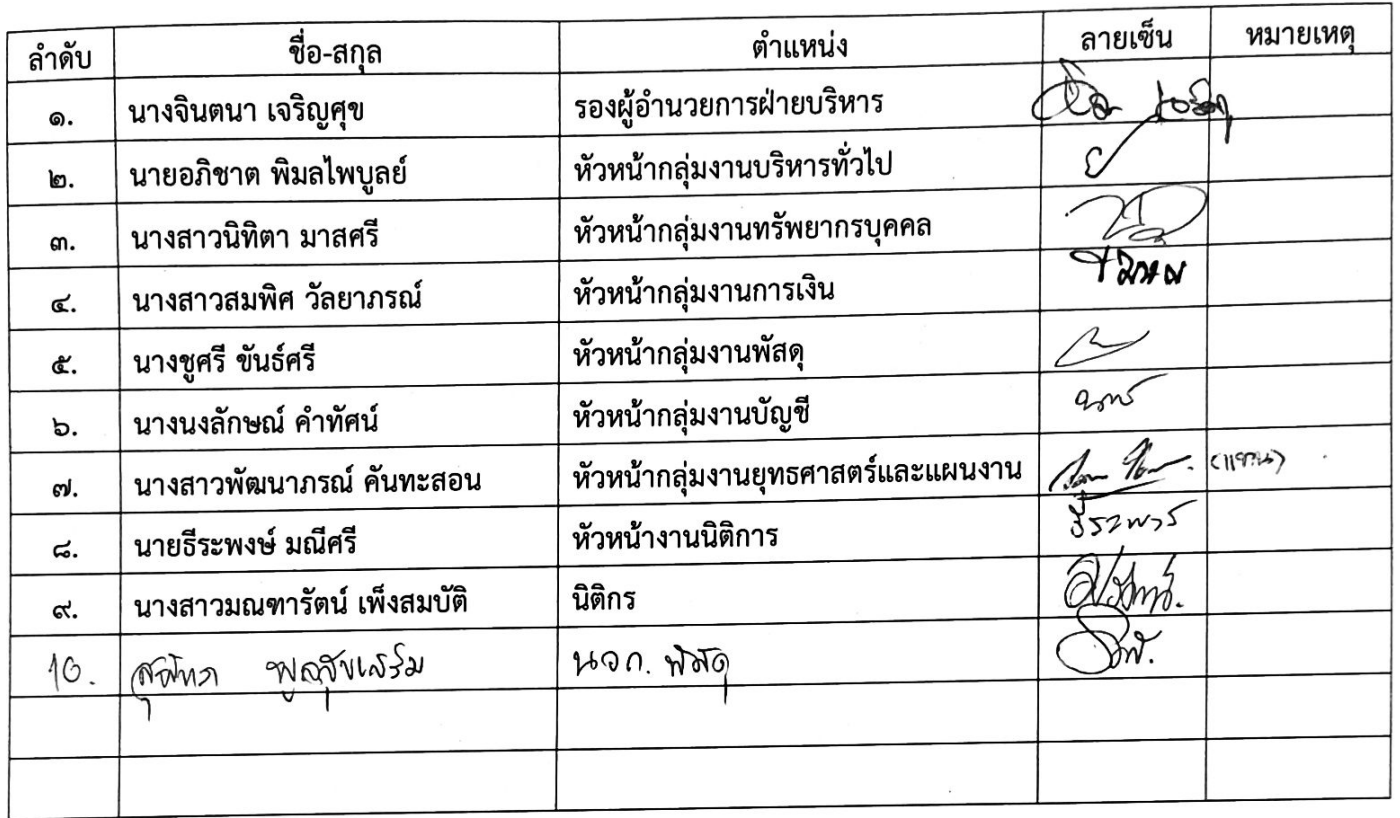 ลำดับ ชื่อ-สกุล ตำแหน่ง ลายเซ็น หมายเหตุ
๑. นางจินตนา เจริญศุข รองผู้อำนวยการฝ่ายบริหาร
๒. นายอภิชาต พิมลไพบูลย์ หัวหน้ากลุ่มงานบริหารทั่วไป
๓. นางสาวนิทิตา มาสศรี หัวหน้ากลุ่มงานทรัพยากรบุคคล
๔. นางสาวสมพิศ วัลยาภรณ์ หัวหน้ากลุ่มงานการเงิน
๕. นางชูศรี ขันธ์ศรี หัวหน้ากลุ่มงานพัสดุ
๖. นางนงลักษณ์ คำทัศน์ หัวหน้ากลุ่มงานบัญชี
๗. นางสาวพัฒนาภรณ์ คันทะสอน หัวหน้ากลุ่มงานยุทธศาสตร์และแผนงาน (แทน)
๘. นายธีระพงษ์ มณีศรี หัวหน้างานนิติการ
๙. นางสาวมณฑารัตน์ เพ็งสมบัติ นิติกร
10. พัสดุ